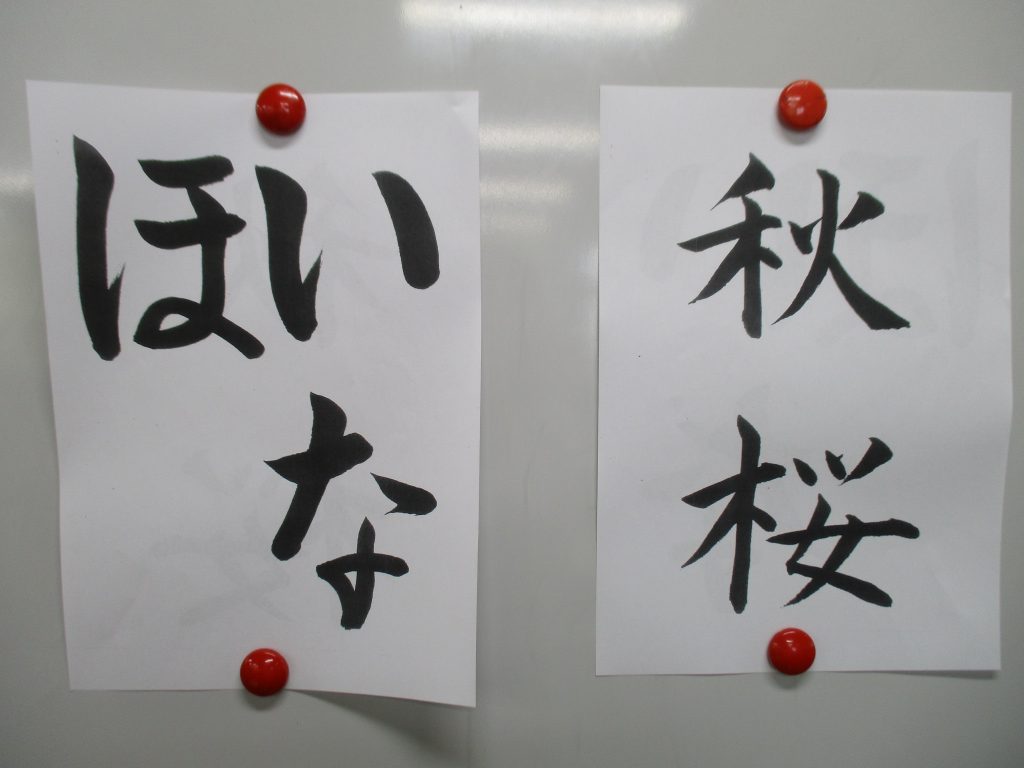 秋桜
いな
ほ